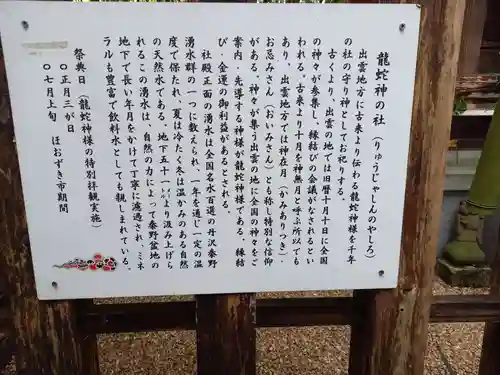 龍蛇神の社（りゅうじゃしんのやしろ）
出雲地方に古来より伝わる龍蛇神様を千年
の社の守り神としてお祀りする。
古くより、出雲の地では旧暦十月十日に全国
の神々が参集し、縁結びの会議がなされるとい
われる。古来より十月を神無月と呼ぶ所以でも
あり、出雲地方では神在月（かみありつき）、
お忌みさん（おいみさん）とも称し特別な信仰
がある。神々が集う出雲の地に全国の神々をご
案内・先導する神様が龍蛇神様である。縁結
び・金運の御利益があるとされる。
社殿正面の湧水は全国名水百選の丹沢秦野
湧水群の一つに数えられ、一年を通し一定の温
度で保たれ、夏は冷たく冬は温かみのある自然
の天然水である。地下五十㍍より汲み上げら
れるこの湧水は、自然の力によって秦野盆地の
地下で長い年月をかけて丁寧に濾過され、ミネ
ラルも豊富で飲料水としても親しまれている。
祭典日（龍蛇神様の特別拝観実施）
〇正月三が日
〇七月上旬　ほおずき市期間